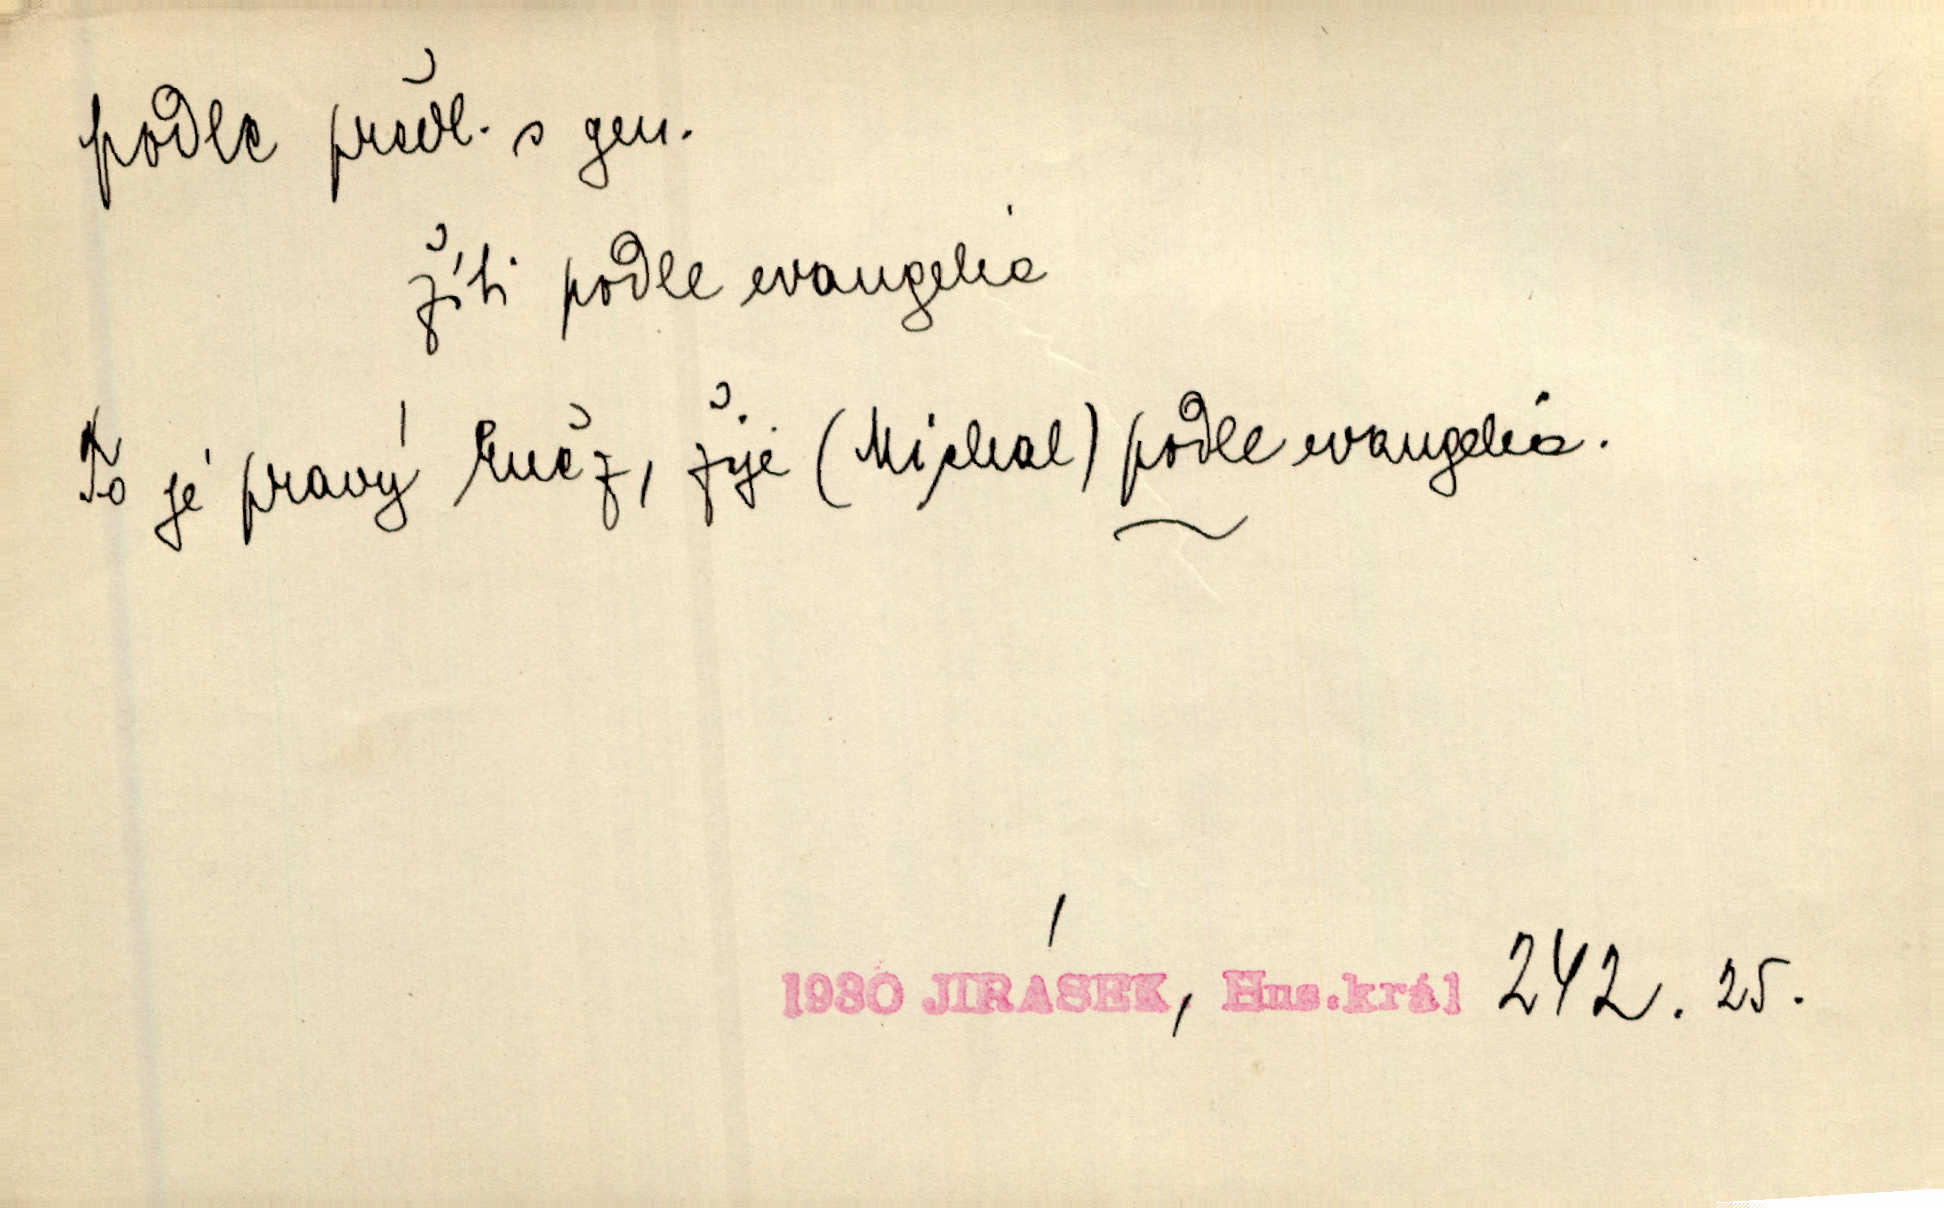 podle předl. s gen.
žíti podle evangelia
To je pravý kněz, žije (Michal) podle evangelia.
1930 JIRÁSEK, Hus.král 242. 25.